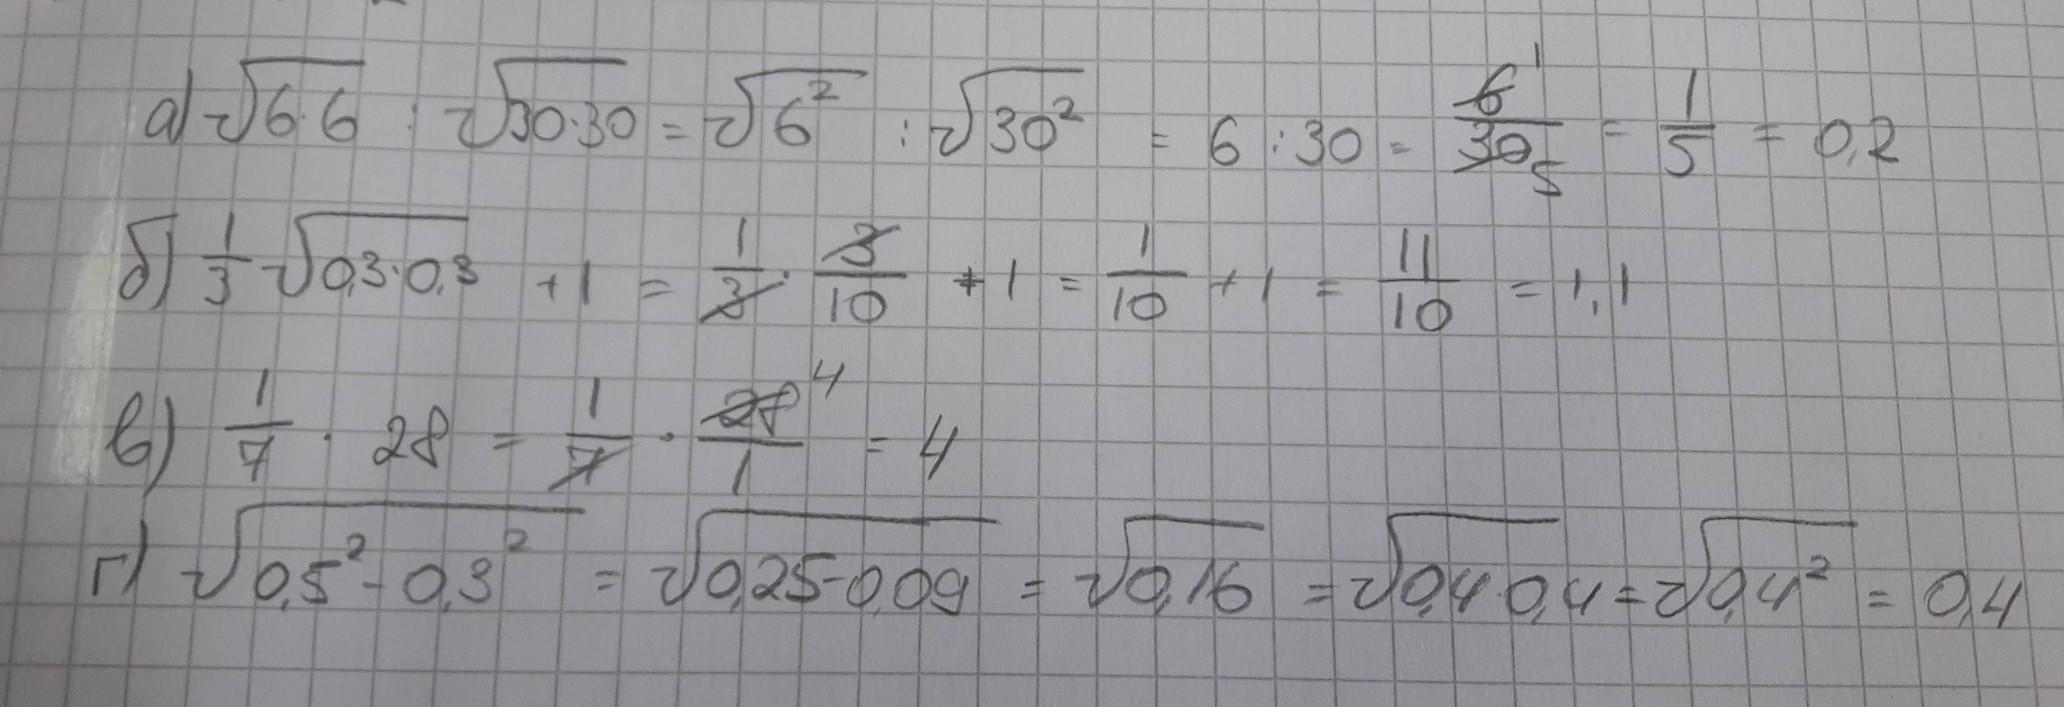 а) √6·6 : √30·30 = √6² : √30² = 6 : 30 = 6/30 ¹/₅ = 1/5 = 0,2
б) 1/3 √0,3·0,3 + 1 = 1/3 · 3/10 + 1 = 1/10 + 1 = 11/10 = 1,1
в) 1/7 · 28 = 1/7 · 28/1 ⁴ = 4
г) √0,5² - 0,3² = √0,25-0,09 = √0,16 = √0,4·0,4 = √0,4² = 0,4